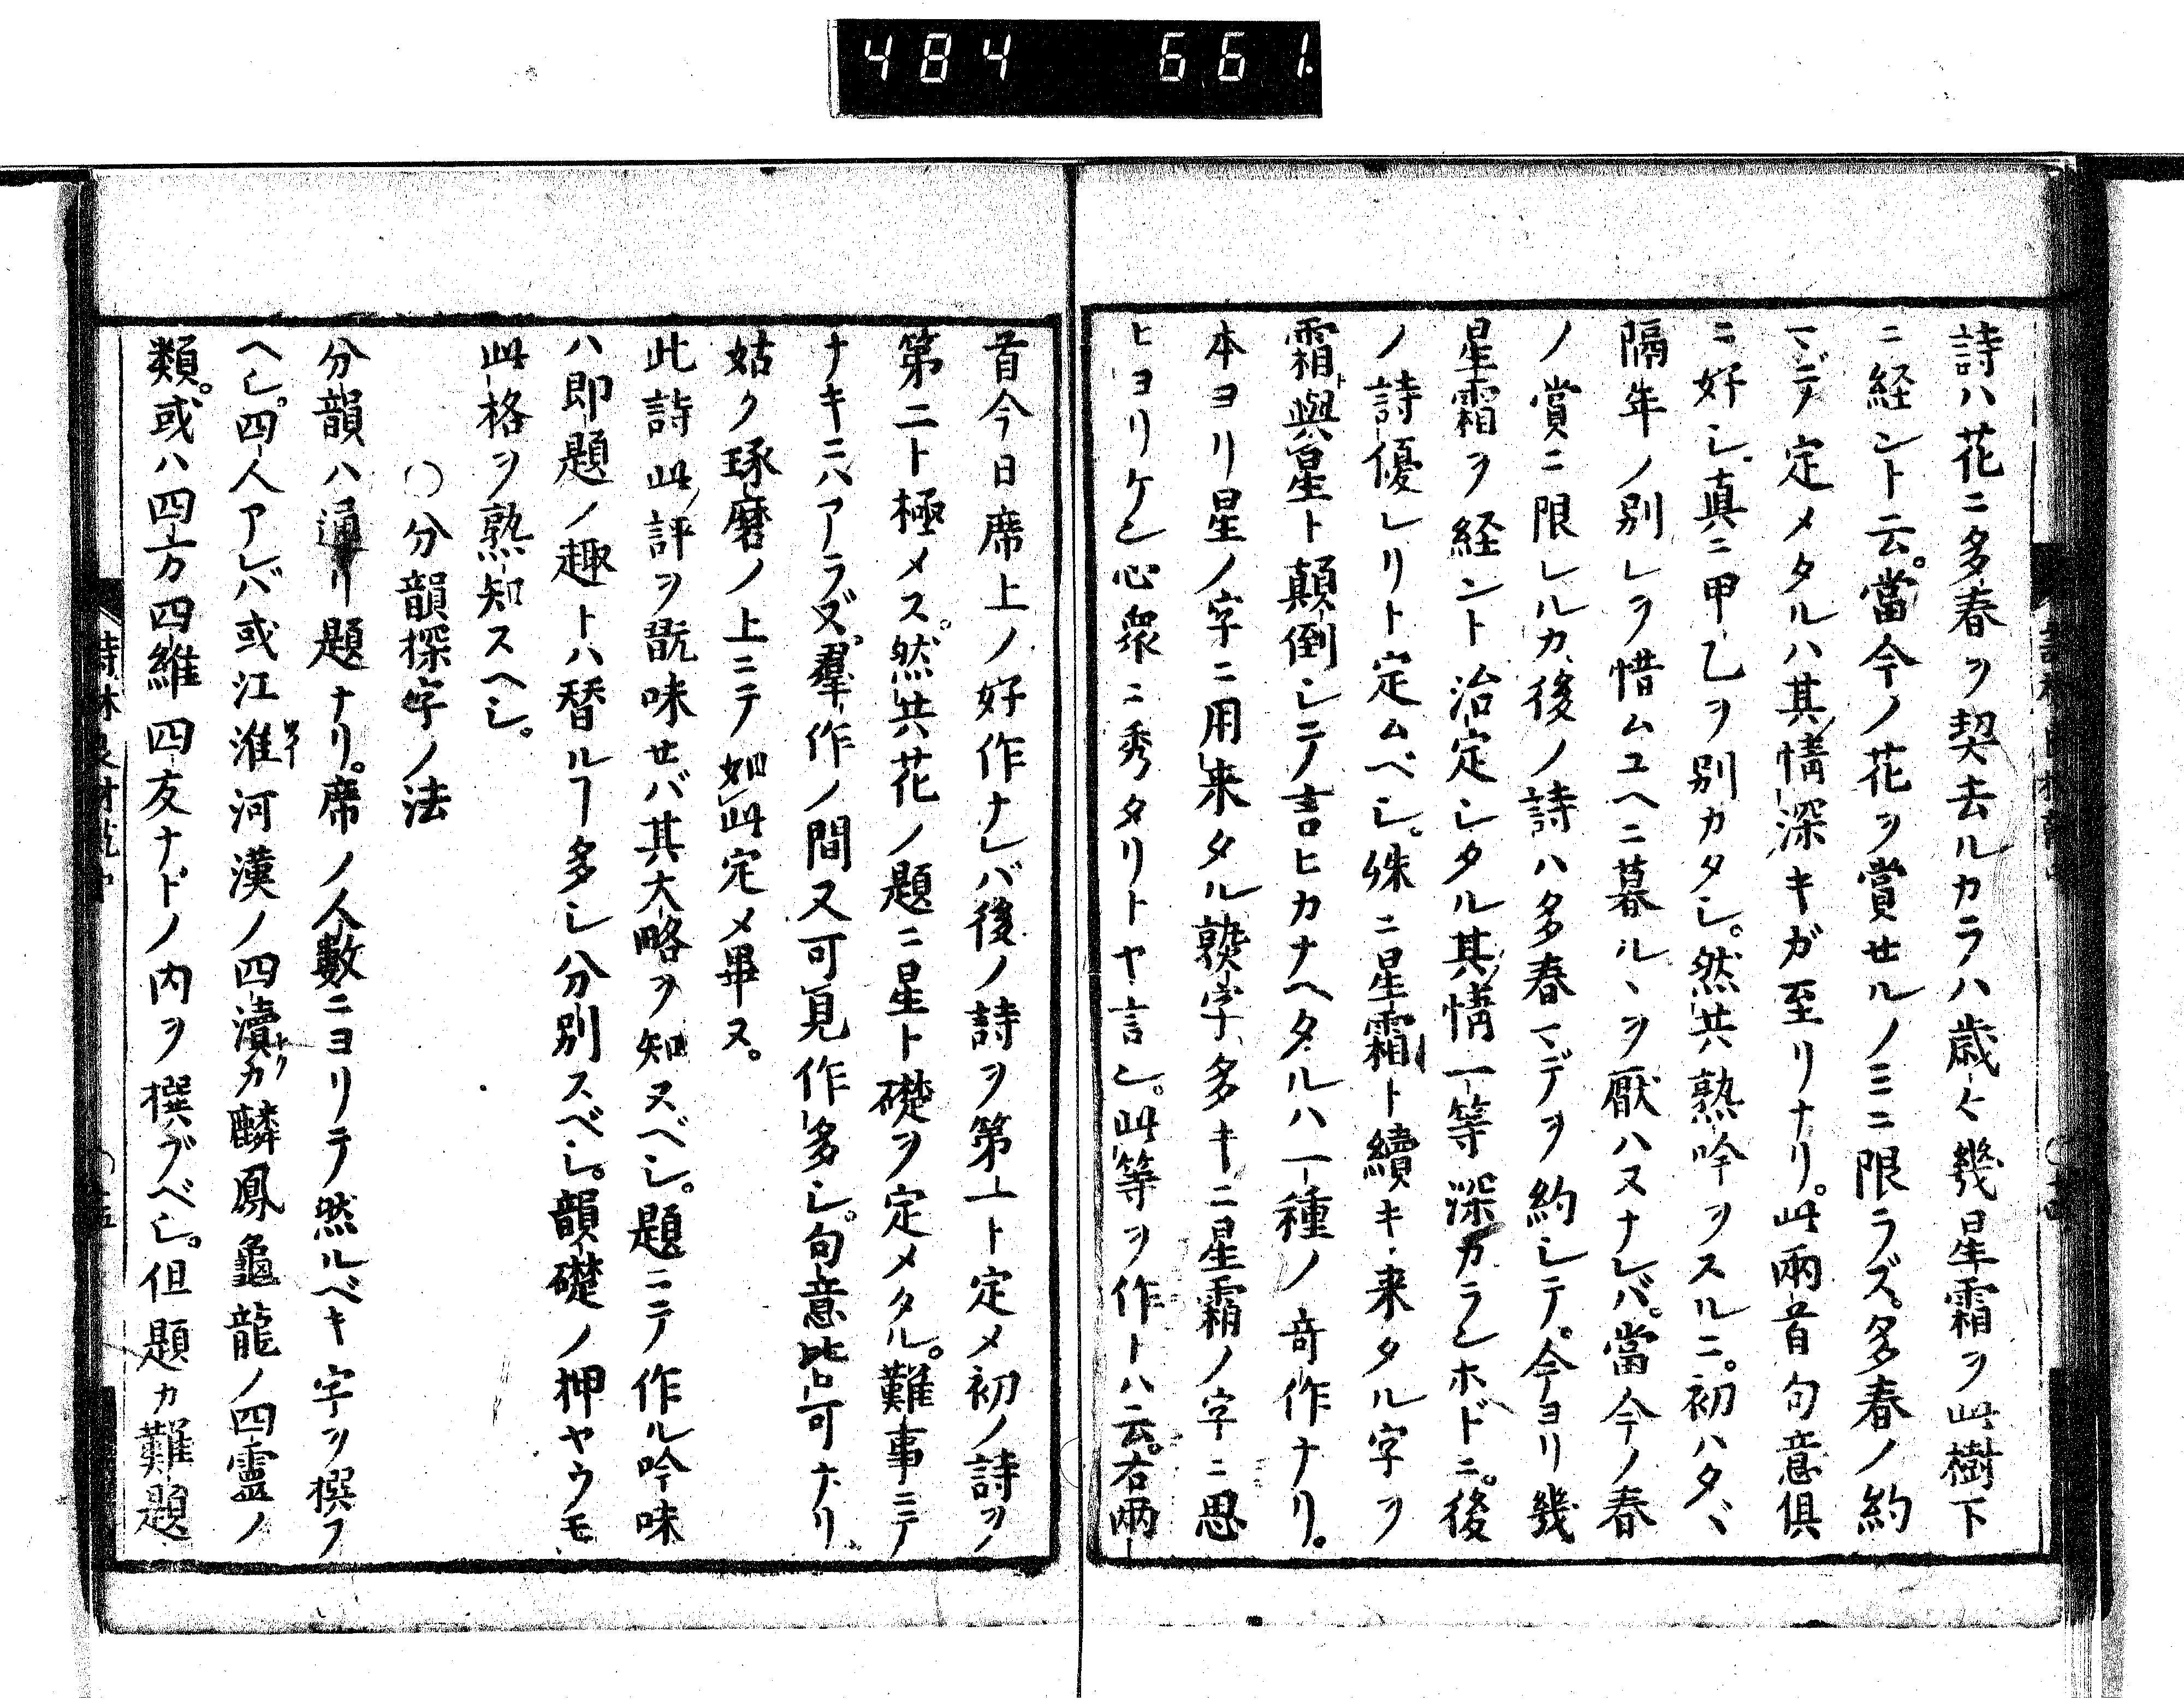 484 661.
詩ハ花ニ多春ヲ契去ルカラハ歳々幾星霜ヲ此樹下
ニ経ント云。當今ノ花ヲ賞せルノミニ限ラズ。多春ノ約
マデテ定メタルハ其情深キガ至リナリ。此兩首句意俱
ニ好シ。真ニ甲乙ヲ別カタシ。然共熟吟ヲスルニ。初ハタヾ
隔年ノ別レヲ惜ムユヘニ暮ルヽヲ厭ハヌナレバ。當今ノ春
ノ賞ニ限レルカ、後ノ詩ハ多春マデヲ約シテ。今ヨリ幾
星霜ヲ経ント治定シタル其情一等深カランホドニ。後
ノ詩優レリト定ムベシ。殊ニ星霜ト續キ来タル字ヲ
霜與星ト顛倒シテ言ヒカナヘタルハ一種ノ奇作ナリ。
本ヨリ星ノ字ニ用来タル熟字多キニ星霜ノ字ニ思
ヒヨリケン心衆ニ秀タリトヤ言ン。此等ヲ作トハ云。右兩
首今日席上ノ好作ナレバ後ノ詩ヲ第一ト定メ初ノ詩ヲ
第二ト極メス。然共花ノ題ニ星ト礎ヲ定メタル。難事ニテ
ナキニハアラズ。羣作ノ間又可見作多シ。句意比可ナリ
姑ク琢磨ノ上ニテ如此定メ畢ヌ。
此詩此評ヲ翫味せバ其大略ヲ知ヌベシ。題ニテ作ル吟味
ハ即題ノ趣トハ替ルヿ多シ分別スベシ。韻礎ノ押ヤウモ
此格ヲ熟知スヘシ。
〇分韻探字ノ法
分韻ハ通リ題ナリ。席ノ人數ニヨリテ然ルベキ字ヲ撰フ
ヘシ。四人アレバ或江淮河漢ノ四瀆カ麟鳳龜龍ノ四靈ノ
類。或ハ四方四維四友ナドノ内ヲ撰ブベシ。但題カ難題